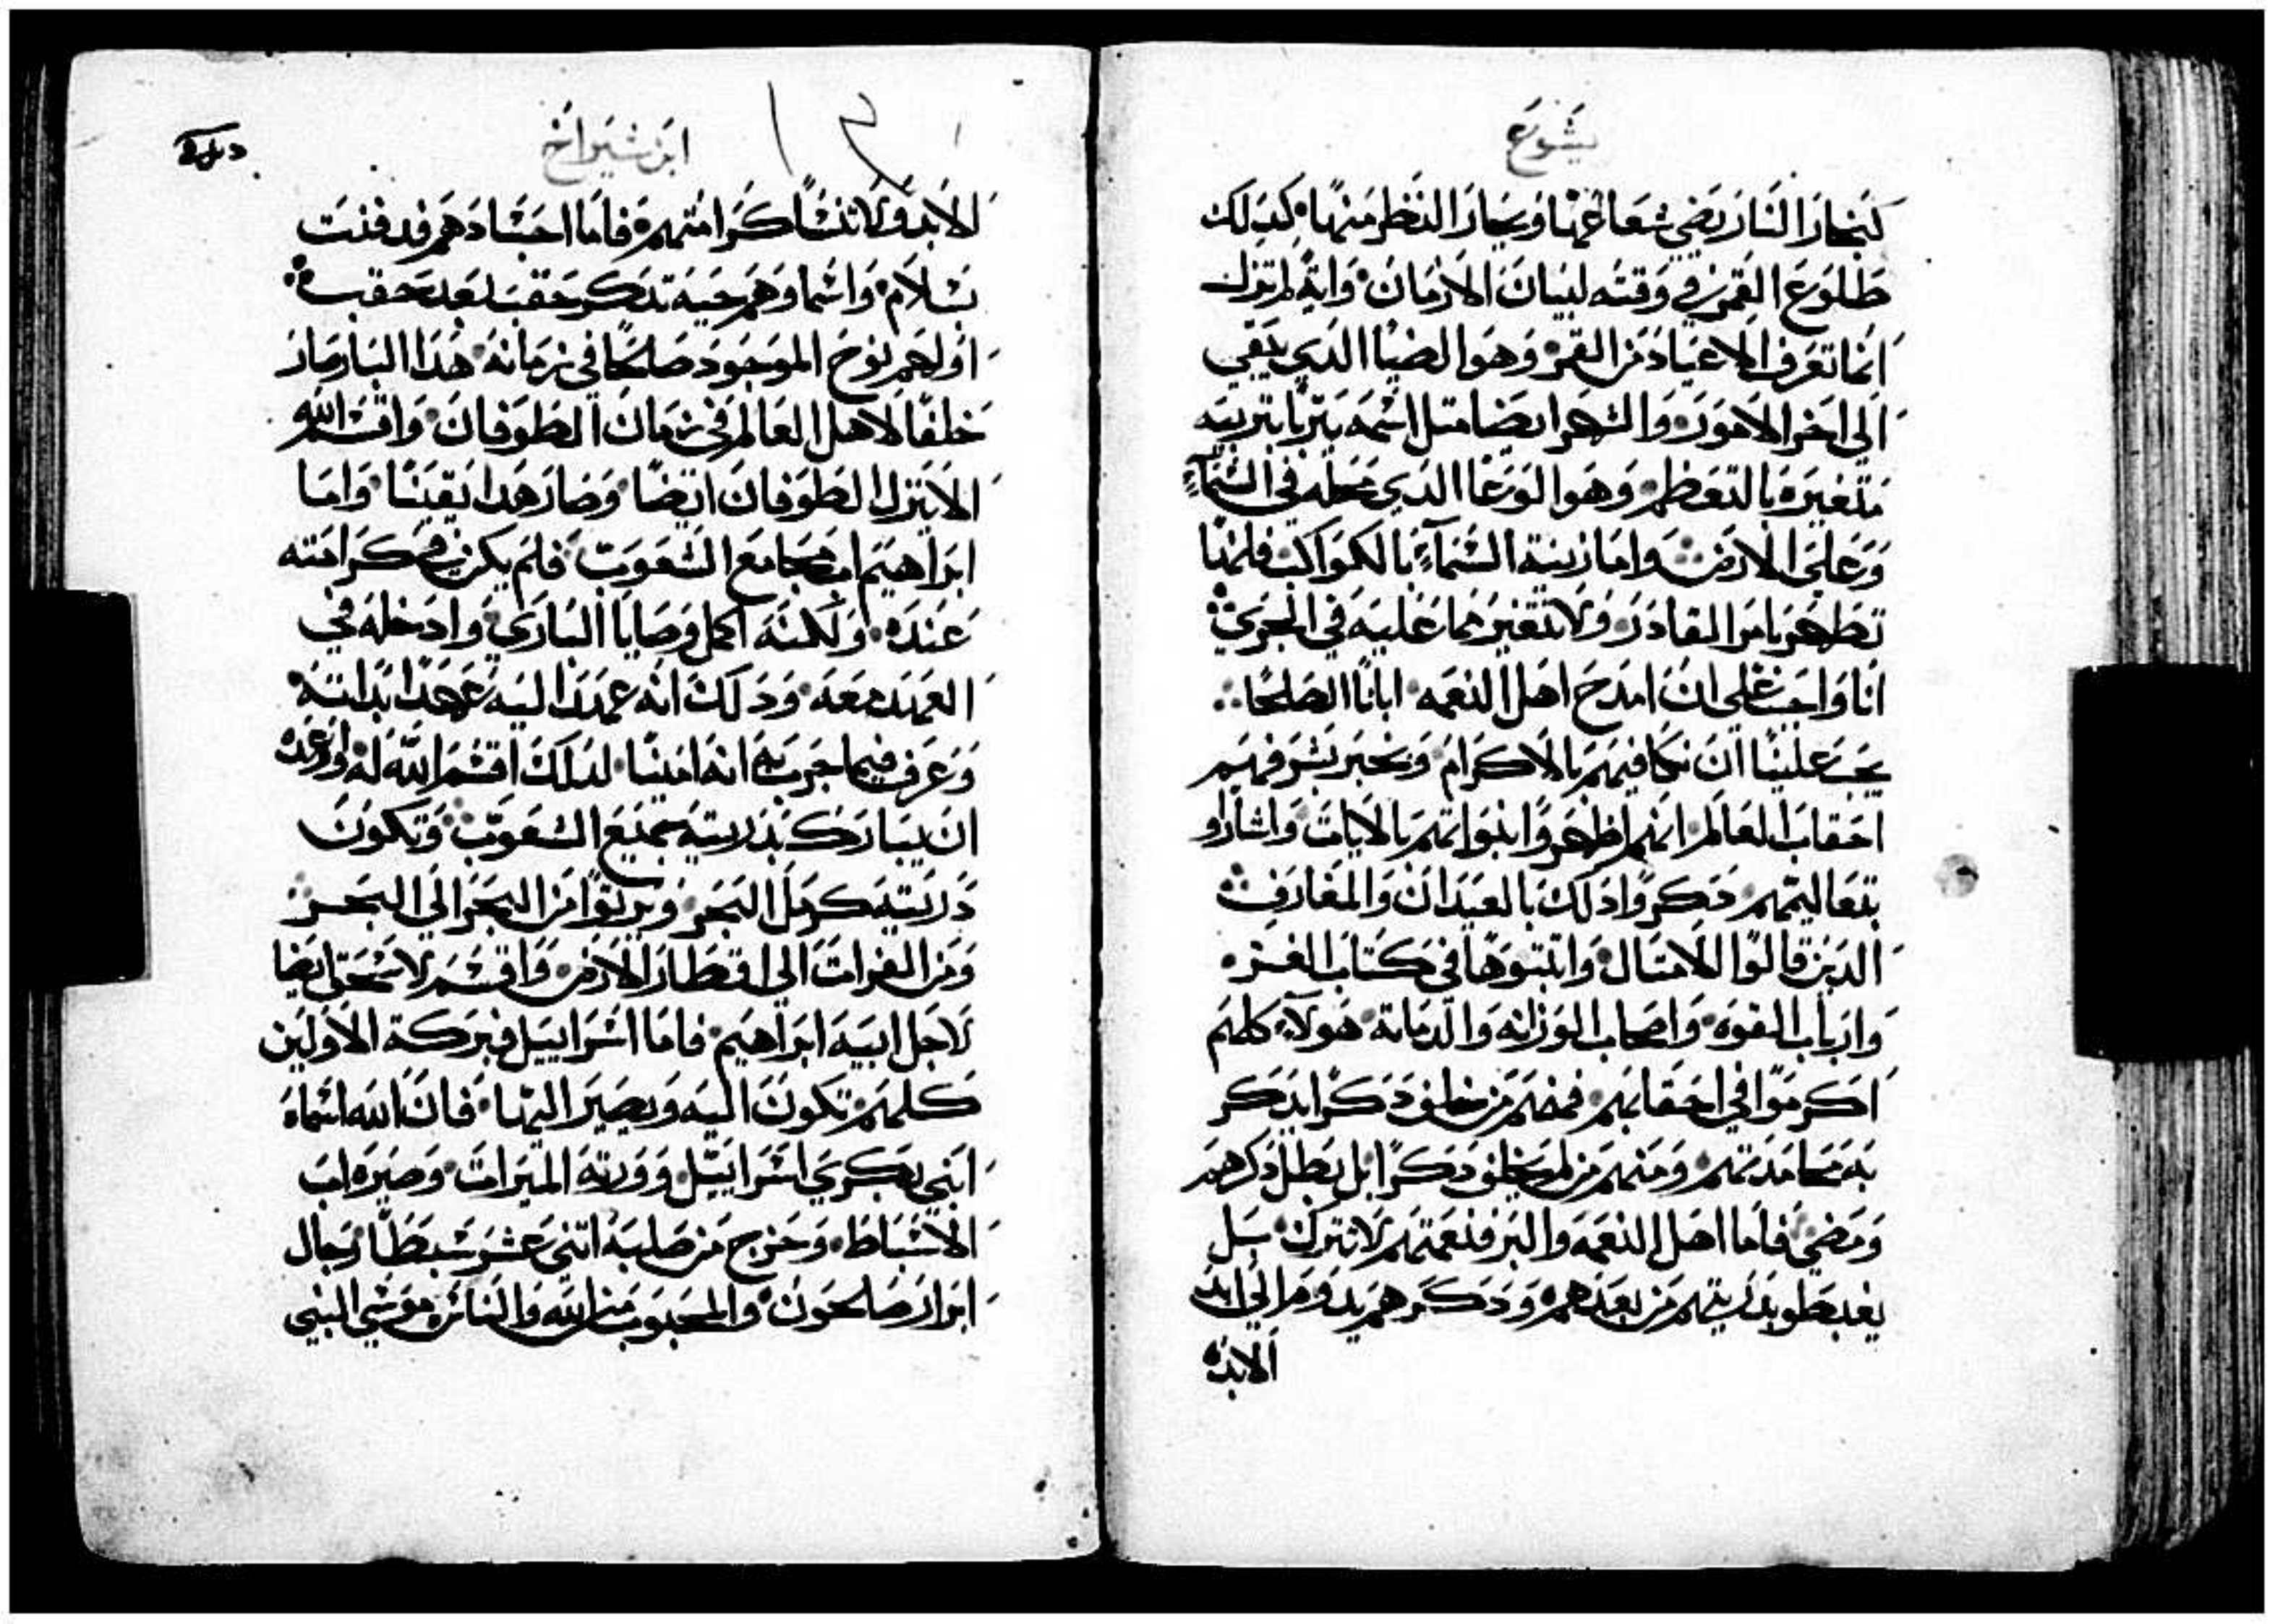 يشوع
كبخار النار يضي شعاعها ويحار النظر منها كدلك
طلوع القمر في وقته لبيان الازمان واية لم تزل
انما تعرف الاعياد من القمر وهو الضيا الدي يبقي
الي اخر الامور والشهر ايضا متل اسمه يتربا بتربيه
متغيره بالتعظم وهوا الوعا الدي محله في السمآء
وعلي الارض واما زينة السمآء بالكواكب فانها
تطهر بامر القادر ولا تتغير مما عليه في الجري
انا واجب علي ان امدح اهل النعمه ابانا الصلحا
يجب علينا ان نكافيهم بالاكرام ونخبر بشرفهم
احقاب العالم انهم اظهروا نبواتهم بالايات واشاروا
بتعاليمهم دكروا دلك بالعيدان والمعارف
الدين قالوا الامتال واتبتوها في كتاب العز
وارباب القوه واصحاب الوزانه والدمانة هولآء كلهم
اكرموا في احقابهم فمنهم من خلف دكرا يدكر
به محامدتهم ومنهم من لم يخلف دكرا بل بطل دكرهم
ومضي فاما اهل النعمه والبر فنعمتهم لا تترك بل
يغبطو بدريتهم من بعدهم ودكرهم يدوم الي ابد
الابد
ابن شيراخ
الابد ولا تنسا كرامتهم فاما اجسادهم فدفنت
بسلام واسماوهم حيه تدكر حقب بعد حقب
اولهم نوح الموجود صالحا في زمانه هدا البار صار
خلفا لاهل العالم في زمان الطوفان واقسم الله
الا ينزل الطوفان ايضا وصار هدا يقينا واما
ابراهيم اب مجامع الشعوب فلم يكن كرامته
عنده ولكنه اكمل وصايا الباري وادخله في
العهد معه ودلك انه عهد اليه عهدا بداته
وعرف فيما جرب به انه امينا لدلك اقسم الله له واوعده
ان يبارك بدريته جميع الشعوب وتكون
دريته كرمل البحر ويرتوا من البحر الي البحر
ومن الفرات الي اقطار الارض واقسم لاسحق ايضا
لاجل ابيه ابراهيم فاما اسراييل فبركة الاولين
كلهم تكون اليه ويصير اليها فان الله اسماه
ابني بكري اسراييل وورته الميرات وصيره اب
الاسباط وخرج من صلبه اتني عشر سبطا رجال
ابرار صالحون والمحبوب من الله والناس موسي النبي